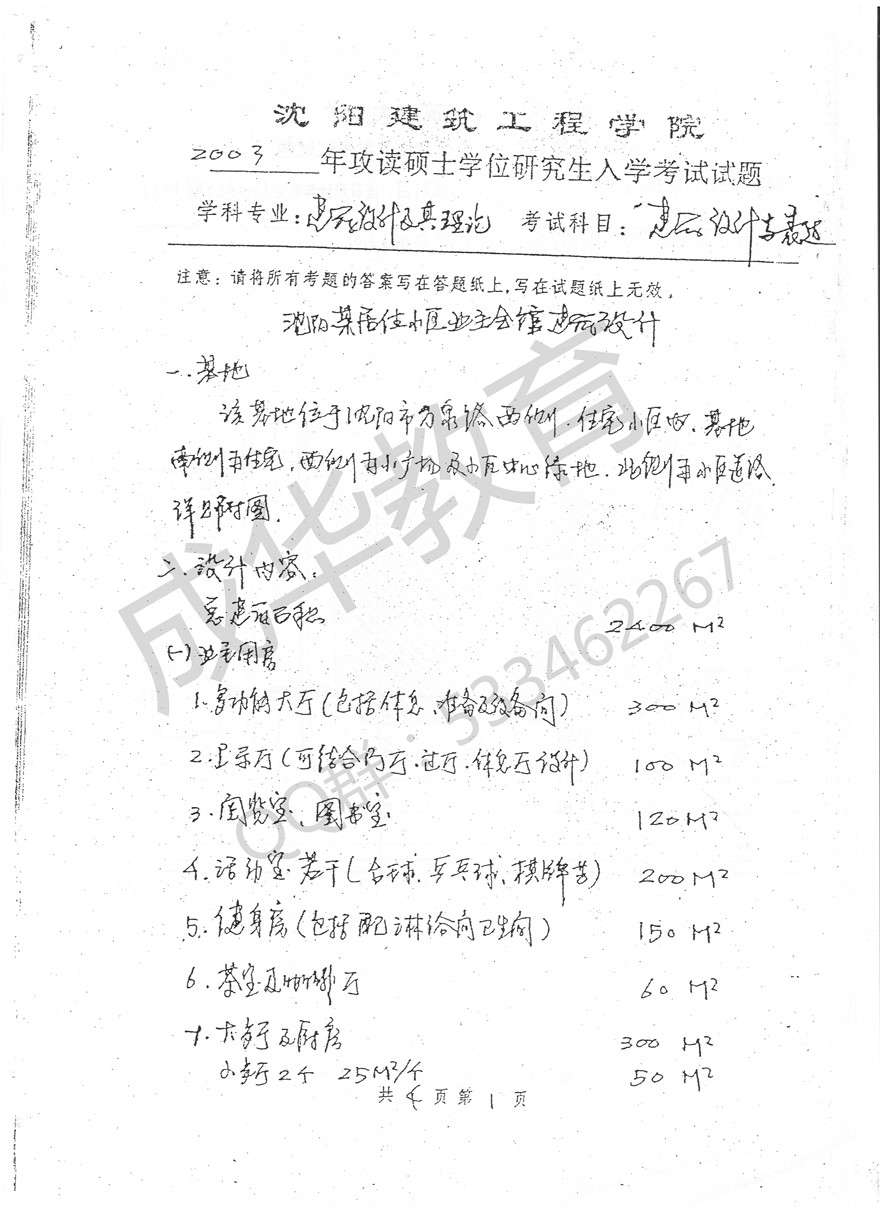 沈阳建筑工程学院
2003 年攻读硕士学位研究生入学考试试题
学科专业：建筑设计及其理论 考试科目：建筑设计与表达
注意：请将所有考题的答案写在答题纸上，写在试题纸上无效。
沈阳某居住小区业主会馆建筑设计
一.基地
该基地位于沈阳市万泉路西侧.住宅小区内.基地
南侧有住宅,西侧有小广场及小区中心绿地.北侧有小区道路.
详见附图.
二.设计内容:
总建筑面积 2400 M²
(一)业主用房
1.多功能大厅(包括休息、准备及设备间) 300 M²
2.展示厅(可结合门厅.过厅.休息厅设计) 100 M²
3.阅览室、图书室 120 M²
4.活动室若干(台球、乒乓球、棋牌等) 200 M²
5.健身房(包括配淋浴间卫生间) 150 M²
6.茶室及咖啡厅 60 M²
7.大餐厅及厨房 300 M²
小餐厅2个 25M²/个 50 M²
共 4 页第 1 页
成华教育
QQ群：533462267